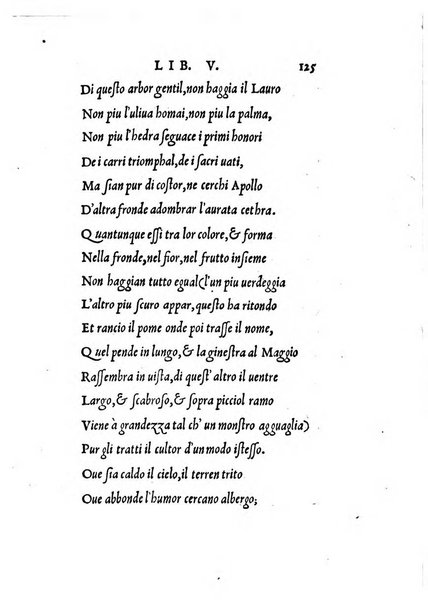 LIB. V. 125
Di queſto arbor gentil, non haggia il Lauro
Non piu l'uliua homai, non piu la palma,
Non piu l'hedra ſeguace i primi honori
De i carri triomphal, de i ſacri uati,
Ma ſian pur di coſtor, ne cerchi Apollo
D'altra fronde adombrar l'aurata cethra.
Quantunque eſſi tra lor colore, & forma
Nella fronde, nel fior, nel frutto inſieme
Non haggian tutto egual (l'un piu uerdeggia
L'altro piu ſcuro appar, queſto ha ritondo
Et rancio il pome onde poi traſſe il nome,
Quel pende in lungo, & la gineſtra al Maggio
Raſſembra in uiſta, di queſt' altro il uentre
Largo, & ſcabroſo, & ſopra picciol ramo
Viene à grandezza tal ch' un monſtro agguaglia)
Pur gli tratti il cultor d'un modo iſteſſo.
Oue ſia caldo il cielo, il terren trito
Oue abbonde l'humor cercano albergo;